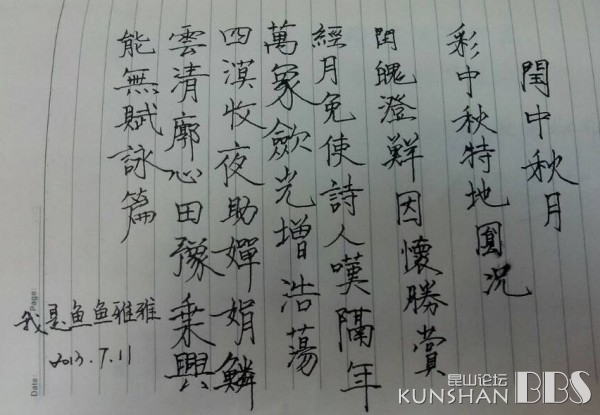 閏中秋月
彩中秋特地圓况
閏魄澄鮮因懷勝賞
經月免使詩人嘆隔年
萬象歛光增浩蕩
四漠收夜助嬋娟鱗
雲清廓心田豫乗興
能無賦詠篇
我是鱼鱼雅雅
2013.7.11
Page:
Date:
昆山论坛
KUNSHAN BBS